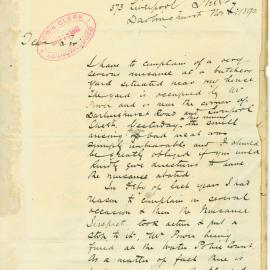 573 Liverpool Street
Darlinghurst Nov
Dear Sir,
TOWN CLERK
I have to complain of a very
serious nuisance at a butchers
yard situated near my house.
The yard is occupied by Mr
Power and is near the corner of
Darlinghurst Road and Liverpool
Street. Yesterday the smell
arising from bad meat was
simply unbearable and I should
be greatly obliged if you would
kindly give directions to have
the nuisance abated.
In Feby of last year I had
reason to complain on several
occasions & then the Nuisance
Inspector took action & put a
stop to it, Mr Power being
fined at the Water Police Court.
As a matter of fact there is